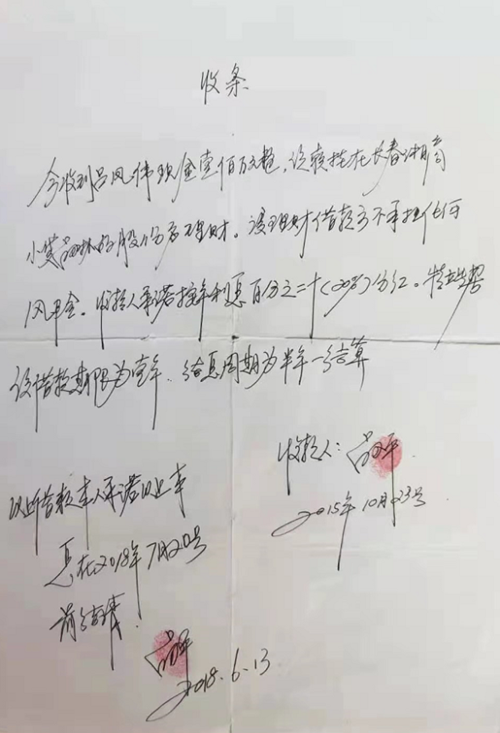 收条
今收到吕凤伟现金壹佰万元整，该款挂在长春
小贷 股份 理财。该理财借款方不承担任何
风险。收款人承诺按年利息百分之二十(20%)分红。特立此据
该借款期限为壹年，结息周期为半年一结算
收款人：
2015年10月23号
以上借款本人承诺以上本
息在2018年7月20号
前结清
2018.6.13